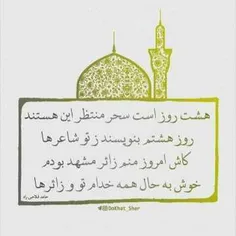 هشت روز است سحر منتظر این هستند
روز هشتم بنویسند ز تو شاعرها
کاش امروز منم زائر مشهد بودم
خوش به حال همه خدام تو و زائرها
حامد فلاحی راد